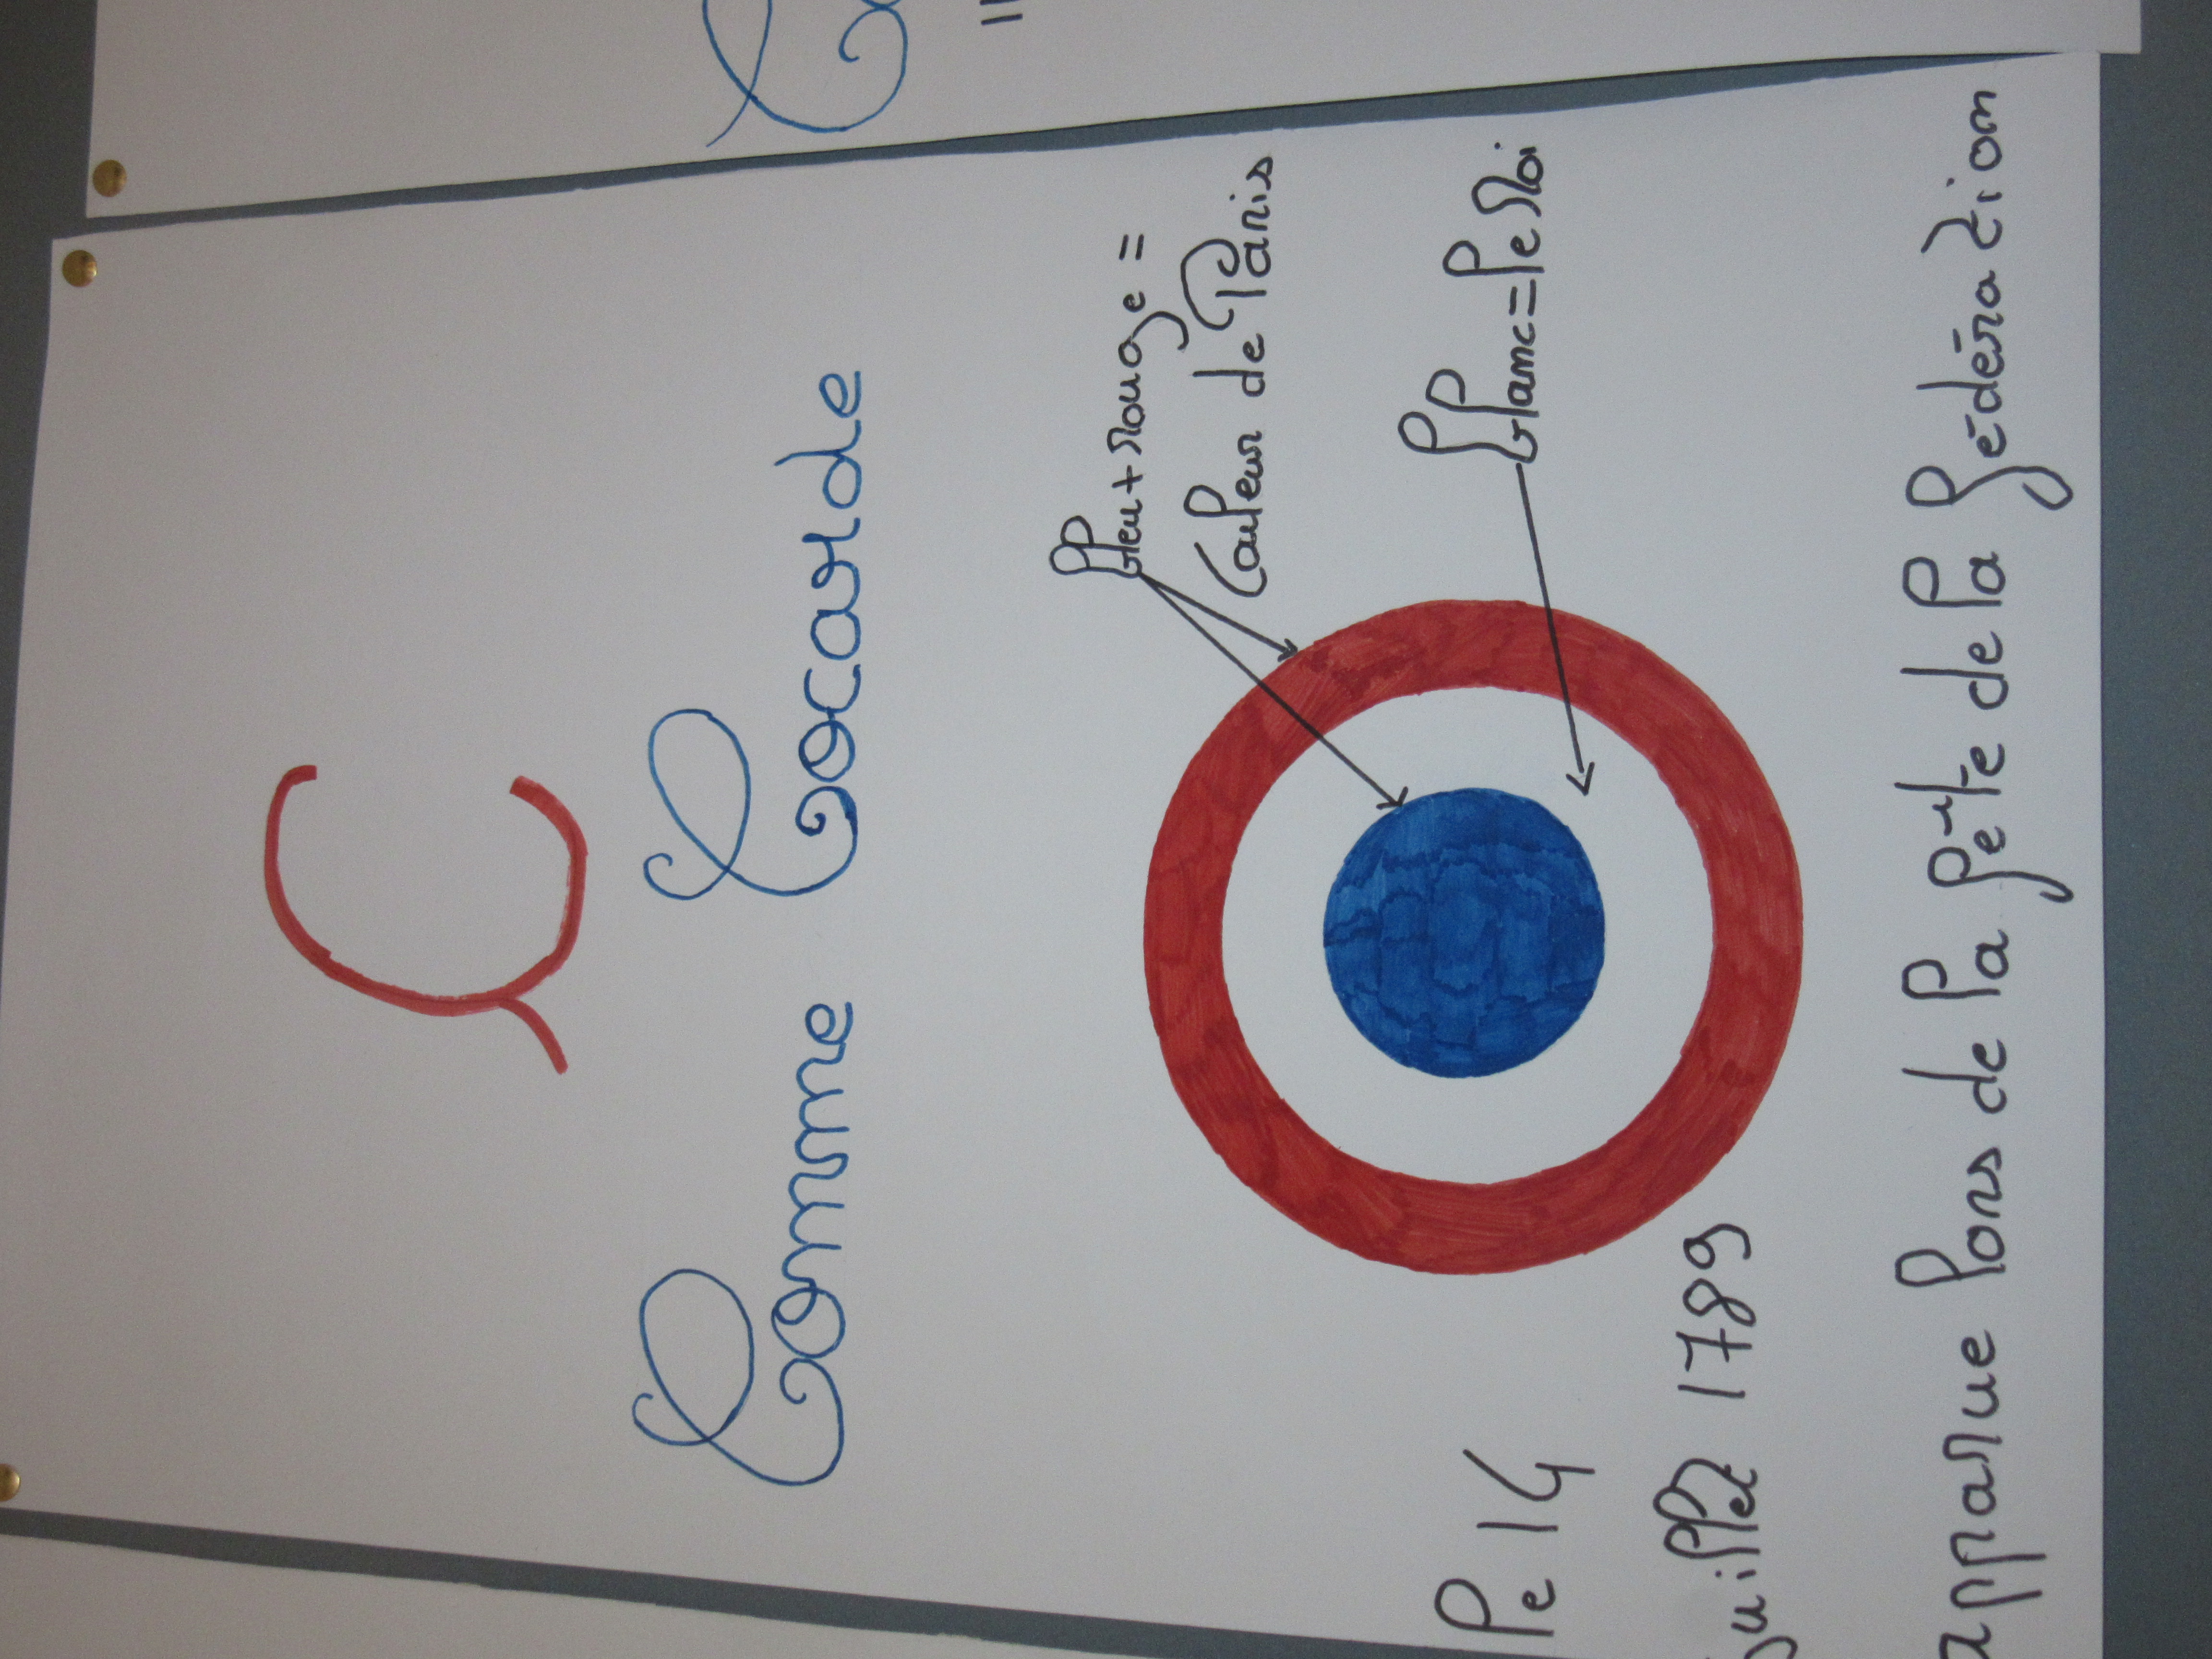 C
Comme Cocarde
Bleu + rouge =
Couleur de Paris
Blanc = le Roi
le 14
juillet 1789
apparue lors de la fête de la fédération